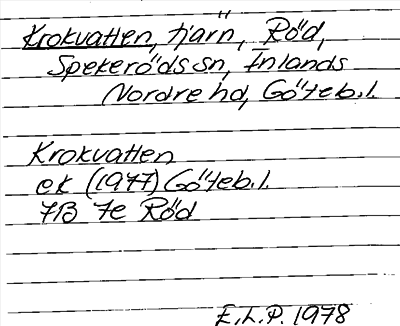 Krokvatten, tjärn, Röd,
Spekeröds sn, Inlands
Nordre hd, Göteb.l.
Krokvatten
ek (1977) Göteb.l.
7B 7e Röd
E.L.P. 1978